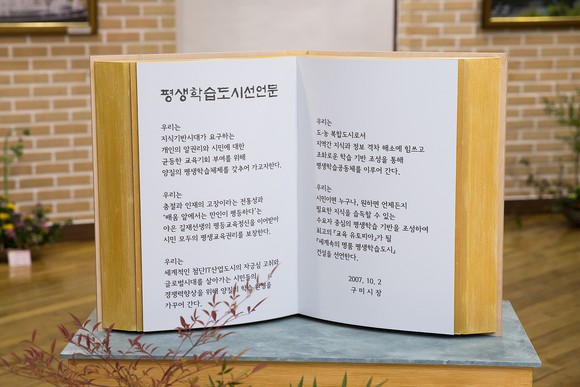 평생학습도시선언문
우리는
지식기반시대가 요구하는
개인의 알권리와 시민에 대한
균등한 교육기회 부여를 위해
양질의 평생학습체제를 갖추어 가고자한다.
우리는
충절과 인재의 고장이라는 전통성과
「배움 앞에서는 만인이 평등하다」는
야은 길재선생의 평등교육정신을 이어받아
시민 모두의 평생교육권리를 보장한다.
우리는
세계적인 첨단IT산업도시의 자긍심 고취와
글로벌시대를 살아가는 시민들의
경쟁력향상을 위해 양질의 학습 환경을
가꾸어 간다.
우리는
도·농 복합도시로서
지역간 지식과 정보 격차 해소에 힘쓰고
조화로운 학습 기반 조성을 통해
평생학습공동체를 이루어 간다.
우리는
시민이면 누구나, 원하면 언제든지
필요한 지식을 습득할 수 있는
수요자 중심의 평생학습 기반을 조성하여
최고의 『교육 유토피아』가 될
『세계속의 명품 평생학습도시』
건설을 선언한다.
2007. 10. 2
구 미 시 장